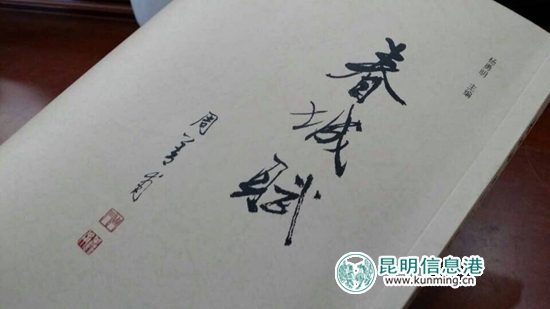 春城赋
周善甫
杨鼎川 主编
昆明信息港
www.kunming.cn